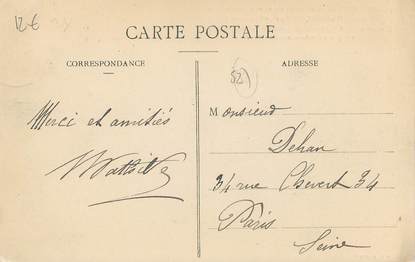 12€
CARTE POSTALE
CORRESPONDANCE
ADRESSE
52
Merci et amitiés
Monsieur
Dehan
34 rue Chevert 34
Paris
Seine